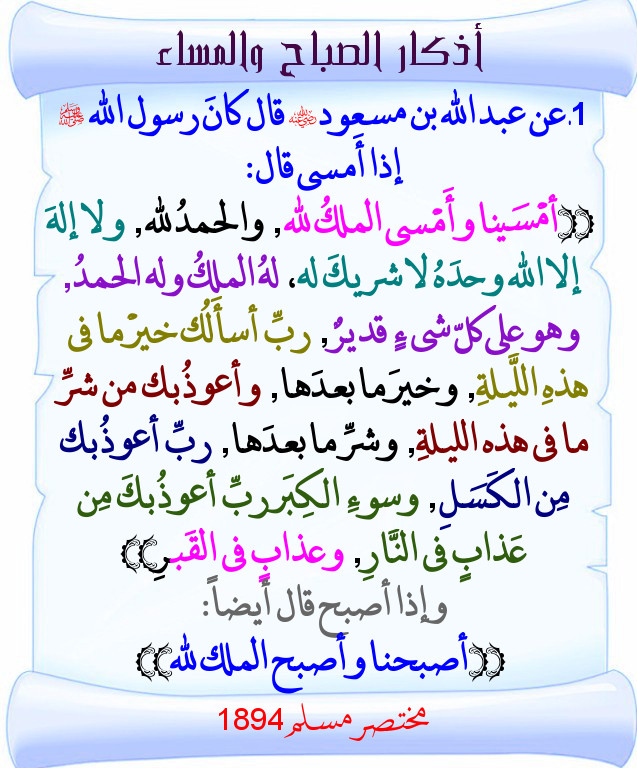 أذكار الصباح والمساء
1.عن عبد الله بن مسعود رضي الله عنه قال كانَ رسول الله ﷺ
إذا أَمسى قال:
((أمْسَينا وأَمْسى الملكُ لله, والحمدُ لله, ولا إلهَ
إلا الله وحدَهُ لا شريكَ له، لهُ الملكُ وله الحمدُ,
وهو على كلّ شىءٍ قديرٌ, ربِّ أسأَلُك خيرْ ما فى
هذهِ اللَّيلةِ, وخيرَ ما بعدَها, وأعوذُ بك من شرِّ
ما فى هذه الليلةِ, وشرِّ ما بعدَها, ربِّ أعوذُ بك
مِن الكَسَلِ, وسوءِ الكِبَر ربِّ أعوذُ بكَ مِن
عَذابٍ فى النَّارِ, وعذابٍ فى القَبرِ))
وإذا أصبح قال أيضاً:
((أصبحنا وأصبح الملك لله))
مختصر مسلم 1894